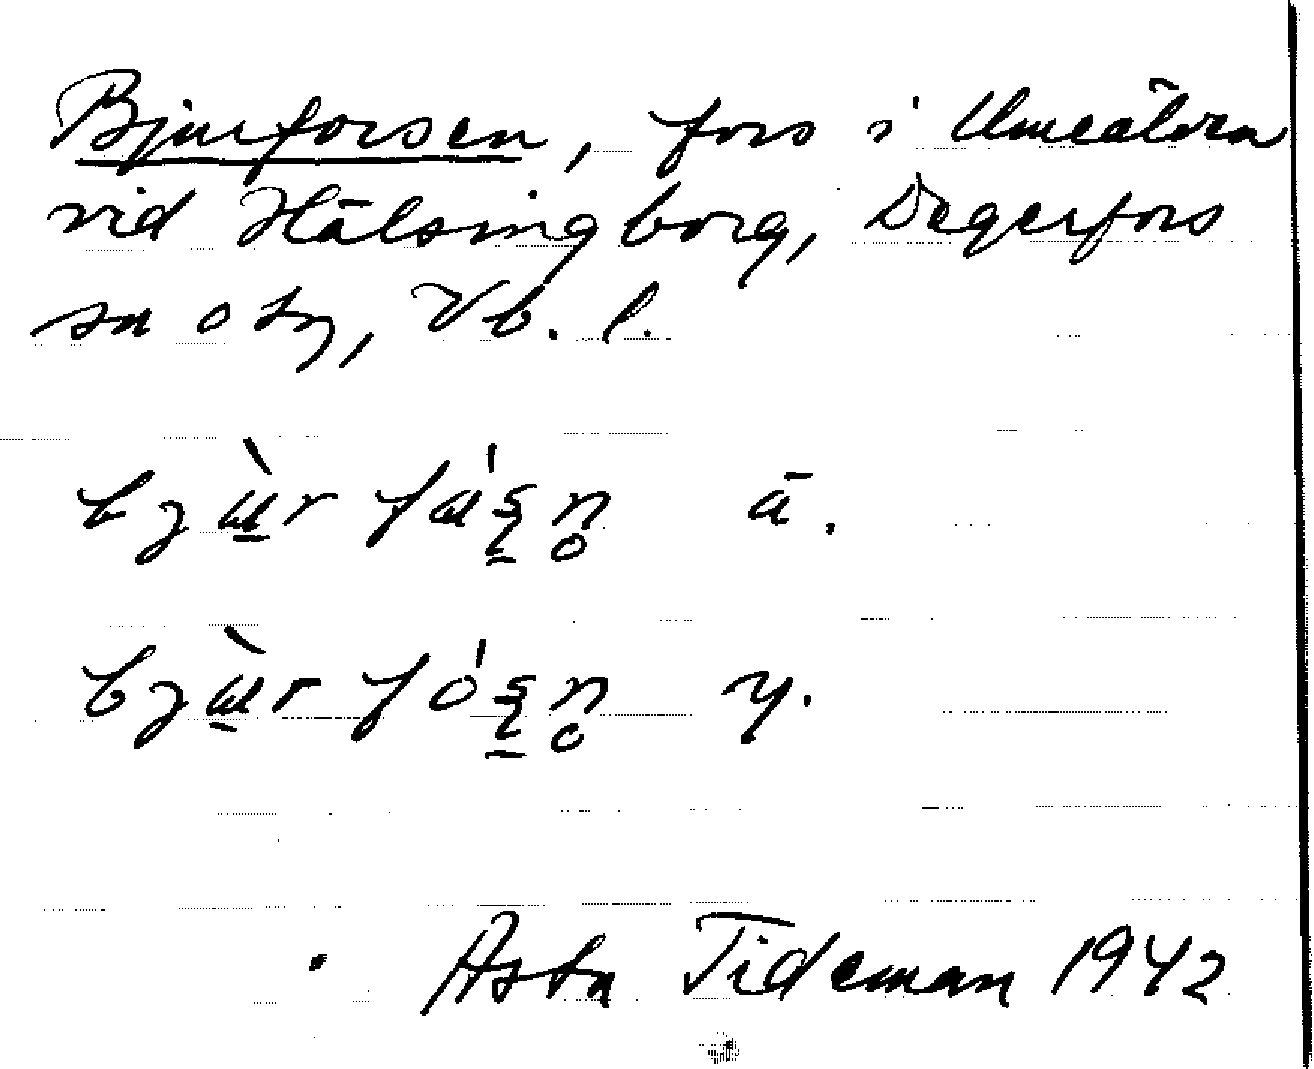 Bjurforsen, fors i Umeälven
vid Hälsingborg, Degerfors
sn o tg, Vb. l.
ä.
y.
Asta Tideman 1942